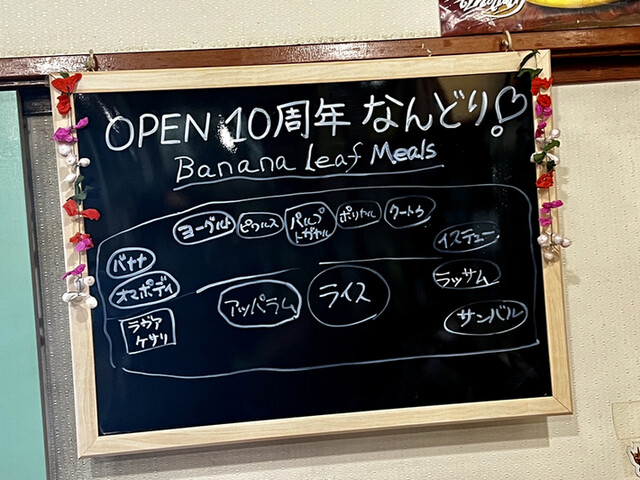 OPEN 10周年 なんどり!♡
Banana Leaf Meals
ヨーグルト
ピクルス
パルプ
トガヤル
ポリヤル
クートゥ
イステュー
バナナ
オマポディ
ラヴァ
ケサリ
アッパラム
ライス
ラッサム
サンバル